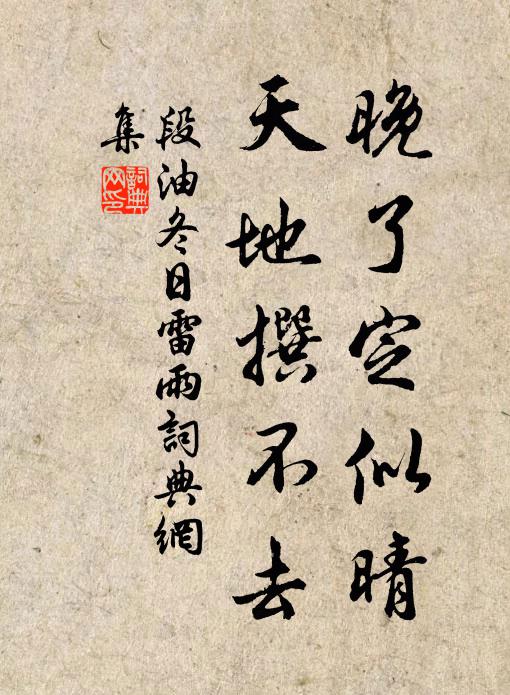 晚了定似晴
天地撰不去
段油冬日雷雨詞典網
集
詞典
网印